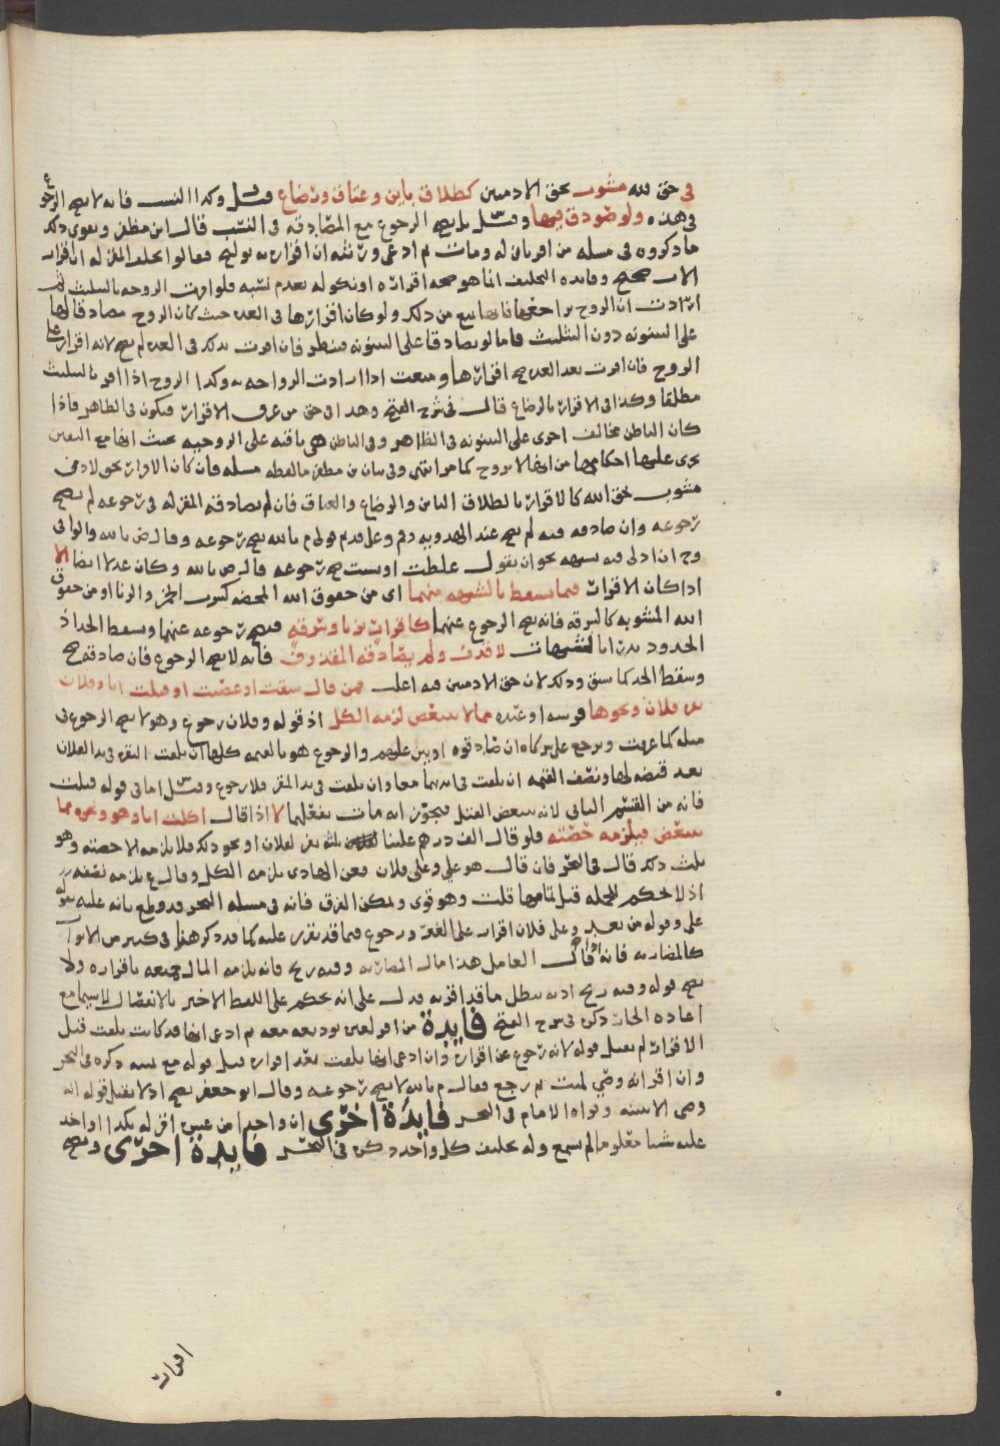 في حق لله مشوب بحق الادميين كطلاق باين وعتاق ورضاع وقيل وكذا النسب فانه لا يصح الرجوع
في هذه ولو صودق فيها وقيل بل يصح الرجوع مع المصادقه في النسب قال ابن مظفر ويقوى ذلك
ما ذكروه في مسله من اقر بان له ومات ثم ادعى ورثته ان اقراره توليج فقالوا يحلف المقر له ان اقرار
الاب صحيح وفايده التحليف انما هو صحه اقراره او نكوله بعدم نسبه فلو اقرت الزوجه بالتثليث ثم
ارادت ان الزوج يراجعها فانها تمنع من ذلك ولو كان اقرارها في العده حيث كان الزوج مصادقا لها
على البينونه دون التثليث فاما لو تصادقا على البينونه فينظر فان اقرت بذلك في العده لم يصح لانه اقرار على
الزوج فان اقرت بعد العده صح اقرارها ومنعت اذا ارادت الزواجه به وكذا الزوج اذا اقر بالتثليث
مطلقا وكذا في الاقرار بالرضاع قال في شرح الفتح وهذا في حق من عرف الاقرار فيكون في الظاهر فاذا
كان الباطن مخالف اجرى على البينونه في الظاهر وفي الباطن هي باقيه على الزوجيه بحيث انها مع اليقين
يجرى عليها احكامها من انها لا تزوج كما مر انتهى وفي بيان بن مظفر ما لفظه مسله فان كان الاقرار بحق لادمي
مشوب بحق الله كالاقرار بالطلاق الباين والرضاع والعتاق فان لم يصادقه المقر له في رجوعه لم يصح
رجوعه وان صادقه فيه لم يصح عند الهدويه وم وعلى قديم قولي م بالله يصح رجوعه وقال ض بالله والوافي
وح ان ادلى فيه بشبهه نحو ان يقول غلطت او نسيت صح رجوعه قال ض بالله وكان عدلا ايضا الا
اذا كان الاقرار فيما يسقط بالشبهه منهما اي من حقوق الله المحضه كشرب الخمر والزنا او من حقوق
الله المشوبه كالسرقه فانه يصح الرجوع عنهما كاقرار بزنا وسرقه فيصح رجوعه عنهما ويسقط الحد اذ
الحدود تدرا بالشبهات لا قذف ولم يصادقه المقذوف فانه لا يصح الرجوع فان صادقه صح
وسقط الحد كما سبق وذلك لان حق الادميين فيه اغلب فمن قال سقت او غصبت او قتلت انا وفلان
بقره فلان ونحوها فرسه او عبده مما لا يتبعض لزمه الكل اذ قوله وفلان رجوع وهو لا يصح الرجوع في
مثله كما عرفت ويرجع على شركاه ان صادقوه او بين عليهم والرجوع هو بالقيمه كلها ان تلفت البقره في يد الفلان
بعد قبضه لها ونصف القيمه ان تلفت في ايديهما معا وان تلفت في يد المقر فلا رجوع وقيل اما في قوله قتلت
فانه من القسم الثاني لانه يتبعض القتل فيجوز انه مات بفعلهما لا اذا قال اكلت انا وهو ونحوه مما
يتبعض فيلزمه حصته فلو قال الف درهم علينا ثلثه نفر لفلان او نحو ذلك فلا يلزمه الا حصته وهو
ثلث ذلك قال في البحر فان قال هو علي وعلى فلان فعن الهادي يلزمه الكل وقال ع يلزمه نصفه
اذ لا حكم للجمله قبل تمامها قلت وهو قوي ويمكن الفرق فانه في مسله البحر قد قطع بانه عليه بقوله
علي وقوله من بعد وعلى فلان اقرار على الغير ورجوع فيما قد تقرر عليه كما قد ذكر هذا في كثير من الابواب
كالمضاربه فانه لو قال العامل هذا مال المضاربه وفيه ربح فانه يلزمه المال جميعه باقراره ولا
يصح قوله وفيه ربح اذ به يبطل ما قد اقر به فدل على انه يحكم على اللفظ الاخير بالانفصال لا سيما مع
اعاده الجار ذكره في شرح الفتح فايدة من اقر لغيره بوديعه معه ثم ادعى انها قد كانت تلفت قبل
الاقرار لم يقبل قوله لانه رجوع عن اقراره وان ادعى انها تلفت بعد اقراره قبل قوله مع يمينه ذكره في البحر
وان اقر انه وصي لميت ثم رجع فقال م بالله لا يصح رجوعه وقال ابو جعفر يصح اذ لا يقبل قوله انه
وصي الا ببينه وقواه الامام في البحر فايدة اخرى ان واحدا من عبيده اقر له بكذا او اخذ
عليه شيا معلوما لم يسمع وله تحليف كل واحد ذكره في البحر فايدة اخرى ويصح
اقرار